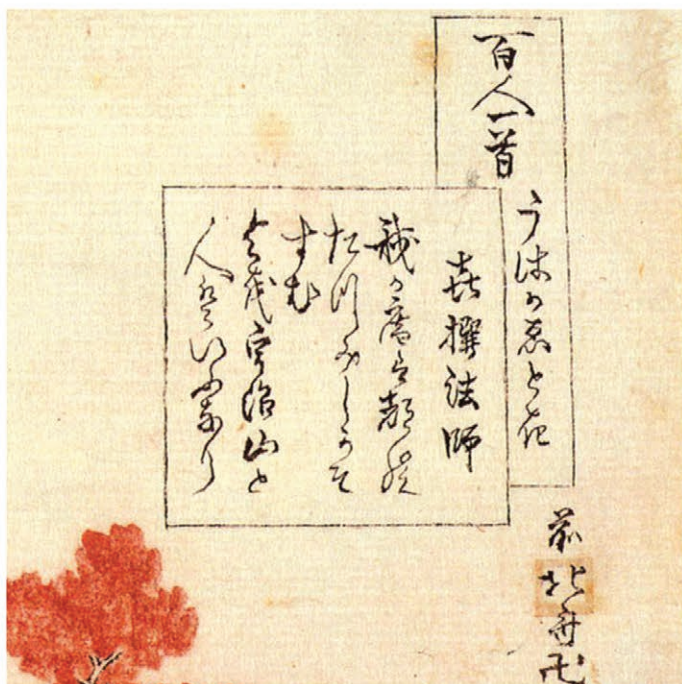 百人一首
うはかゑとき
喜撰法師
我か庵は都の
たつみしかそ
すむ
よを宇治山と
人はいふなり
前北斎卍